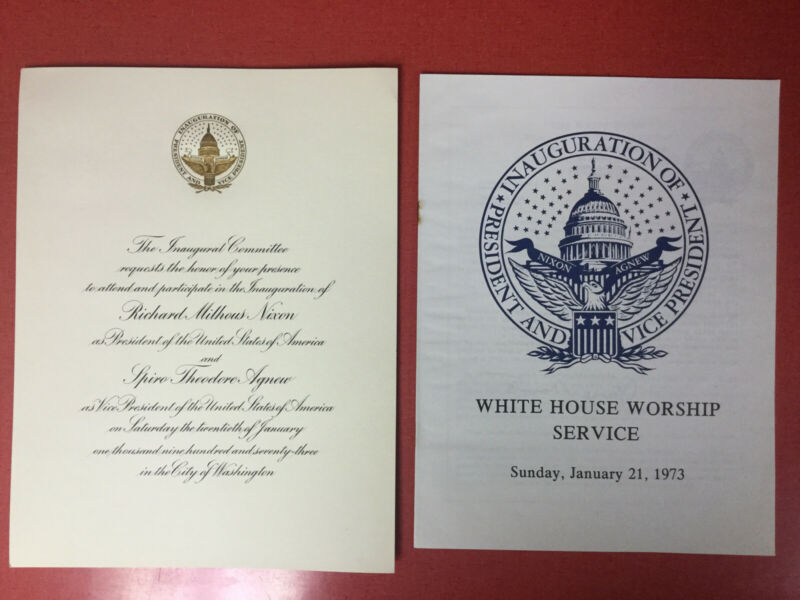 INAUGURATION OF
PRESIDENT AND VICE PRESIDENT
The Inaugural Committee
requests the honor of your presence
to attend and participate in the Inauguration of
Richard Milhous Nixon
as President of the United States of America
and
Spiro Theodore Agnew
as Vice President of the United States of America
on Saturday the twentieth of January
one thousand nine hundred and seventy-three
in the City of Washington
INAUGURATION OF
PRESIDENT AND VICE PRESIDENT
NIXON AGNEW
WHITE HOUSE WORSHIP
SERVICE
Sunday, January 21, 1973